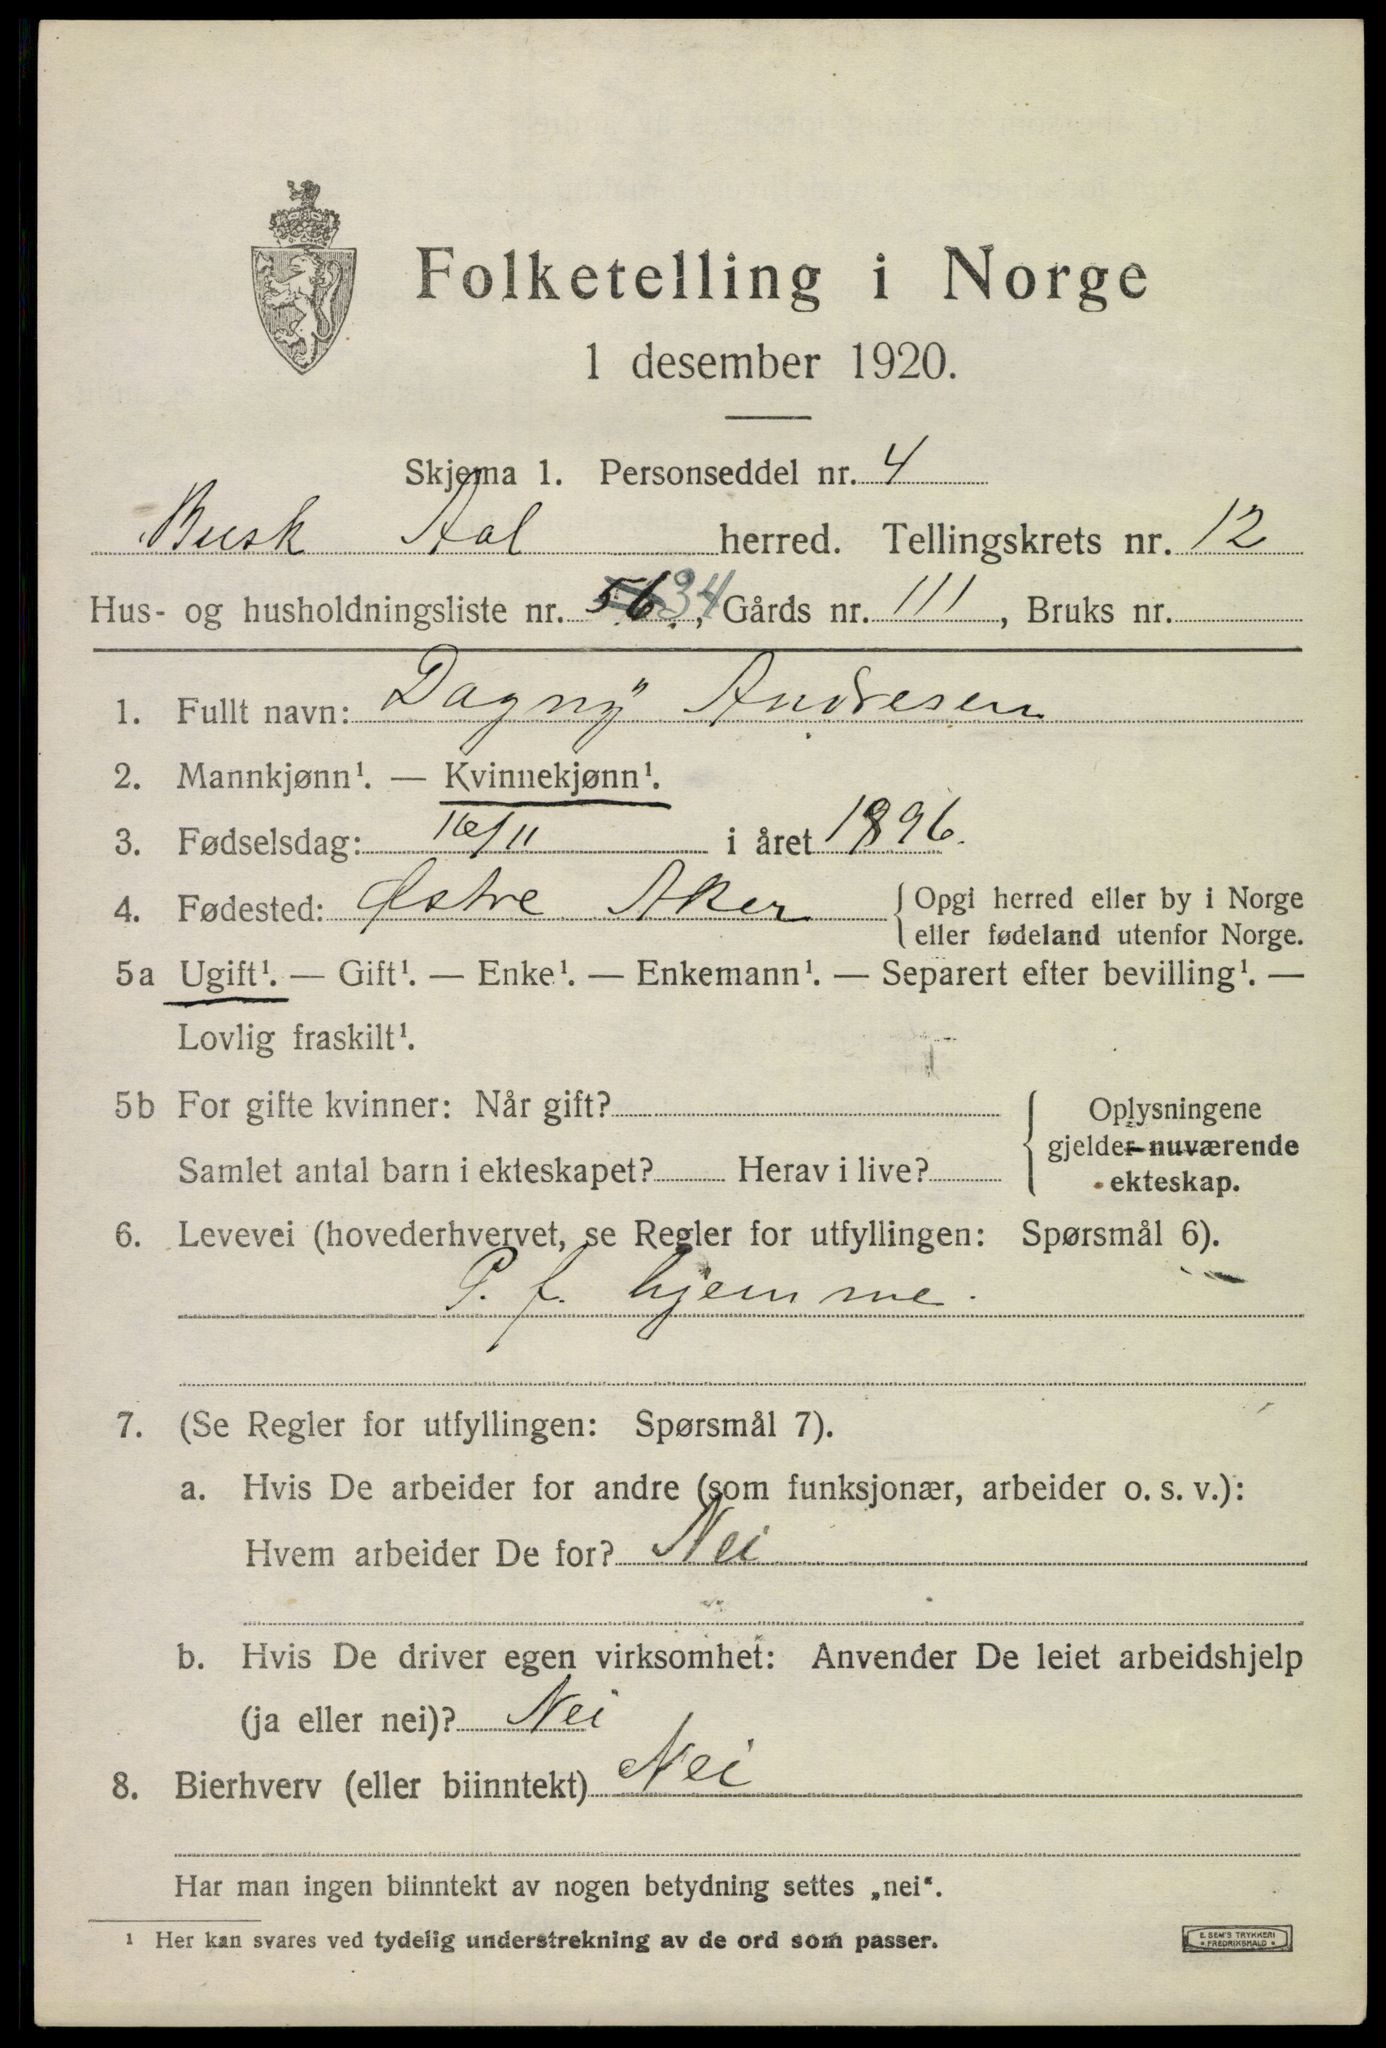 Folketelling i Norge
1 desember 1920.
Skjema 1. Personseddel nr. 4
Busk Aal herred. Tellingskrets nr. 12
Hus- og husholdningsliste nr. 56 34, Gårds nr. 111, Bruks nr.
1. Fullt navn: Dagny Andresen
2. Mannkjønn¹. — Kvinnekjønn¹.
3. Fødselsdag: 16/11 i året 1896.
4. Fødested: Østre Aker { Opgi herred eller by i Norge
eller fødeland utenfor Norge.
5a Ugift¹. — Gift¹. — Enke¹. — Enkemann¹. — Separert efter bevilling¹. —
Lovlig fraskilt¹.
5b For gifte kvinner: Når gift? { Oplysningene
gjelder nuværende
Samlet antal barn i ekteskapet? Herav i live? ekteskap.
6. Levevei (hovederhvervet, se Regler for utfyllingen: Spørsmål 6).
P. f. hjemme.
7. (Se Regler for utfyllingen: Spørsmål 7).
a. Hvis De arbeider for andre (som funksjonær, arbeider o. s. v.):
Hvem arbeider De for? Nei
b. Hvis De driver egen virksomhet: Anvender De leiet arbeidshjelp
(ja eller nei)? Nei
8. Bierhverv (eller biinntekt) Nei
Har man ingen biinntekt av nogen betydning settes „nei“.
¹ Her kan svares ved tydelig understrekning av de ord som passer.
E. SEM'S TRYKKERI
• FREDRIKSHALD •